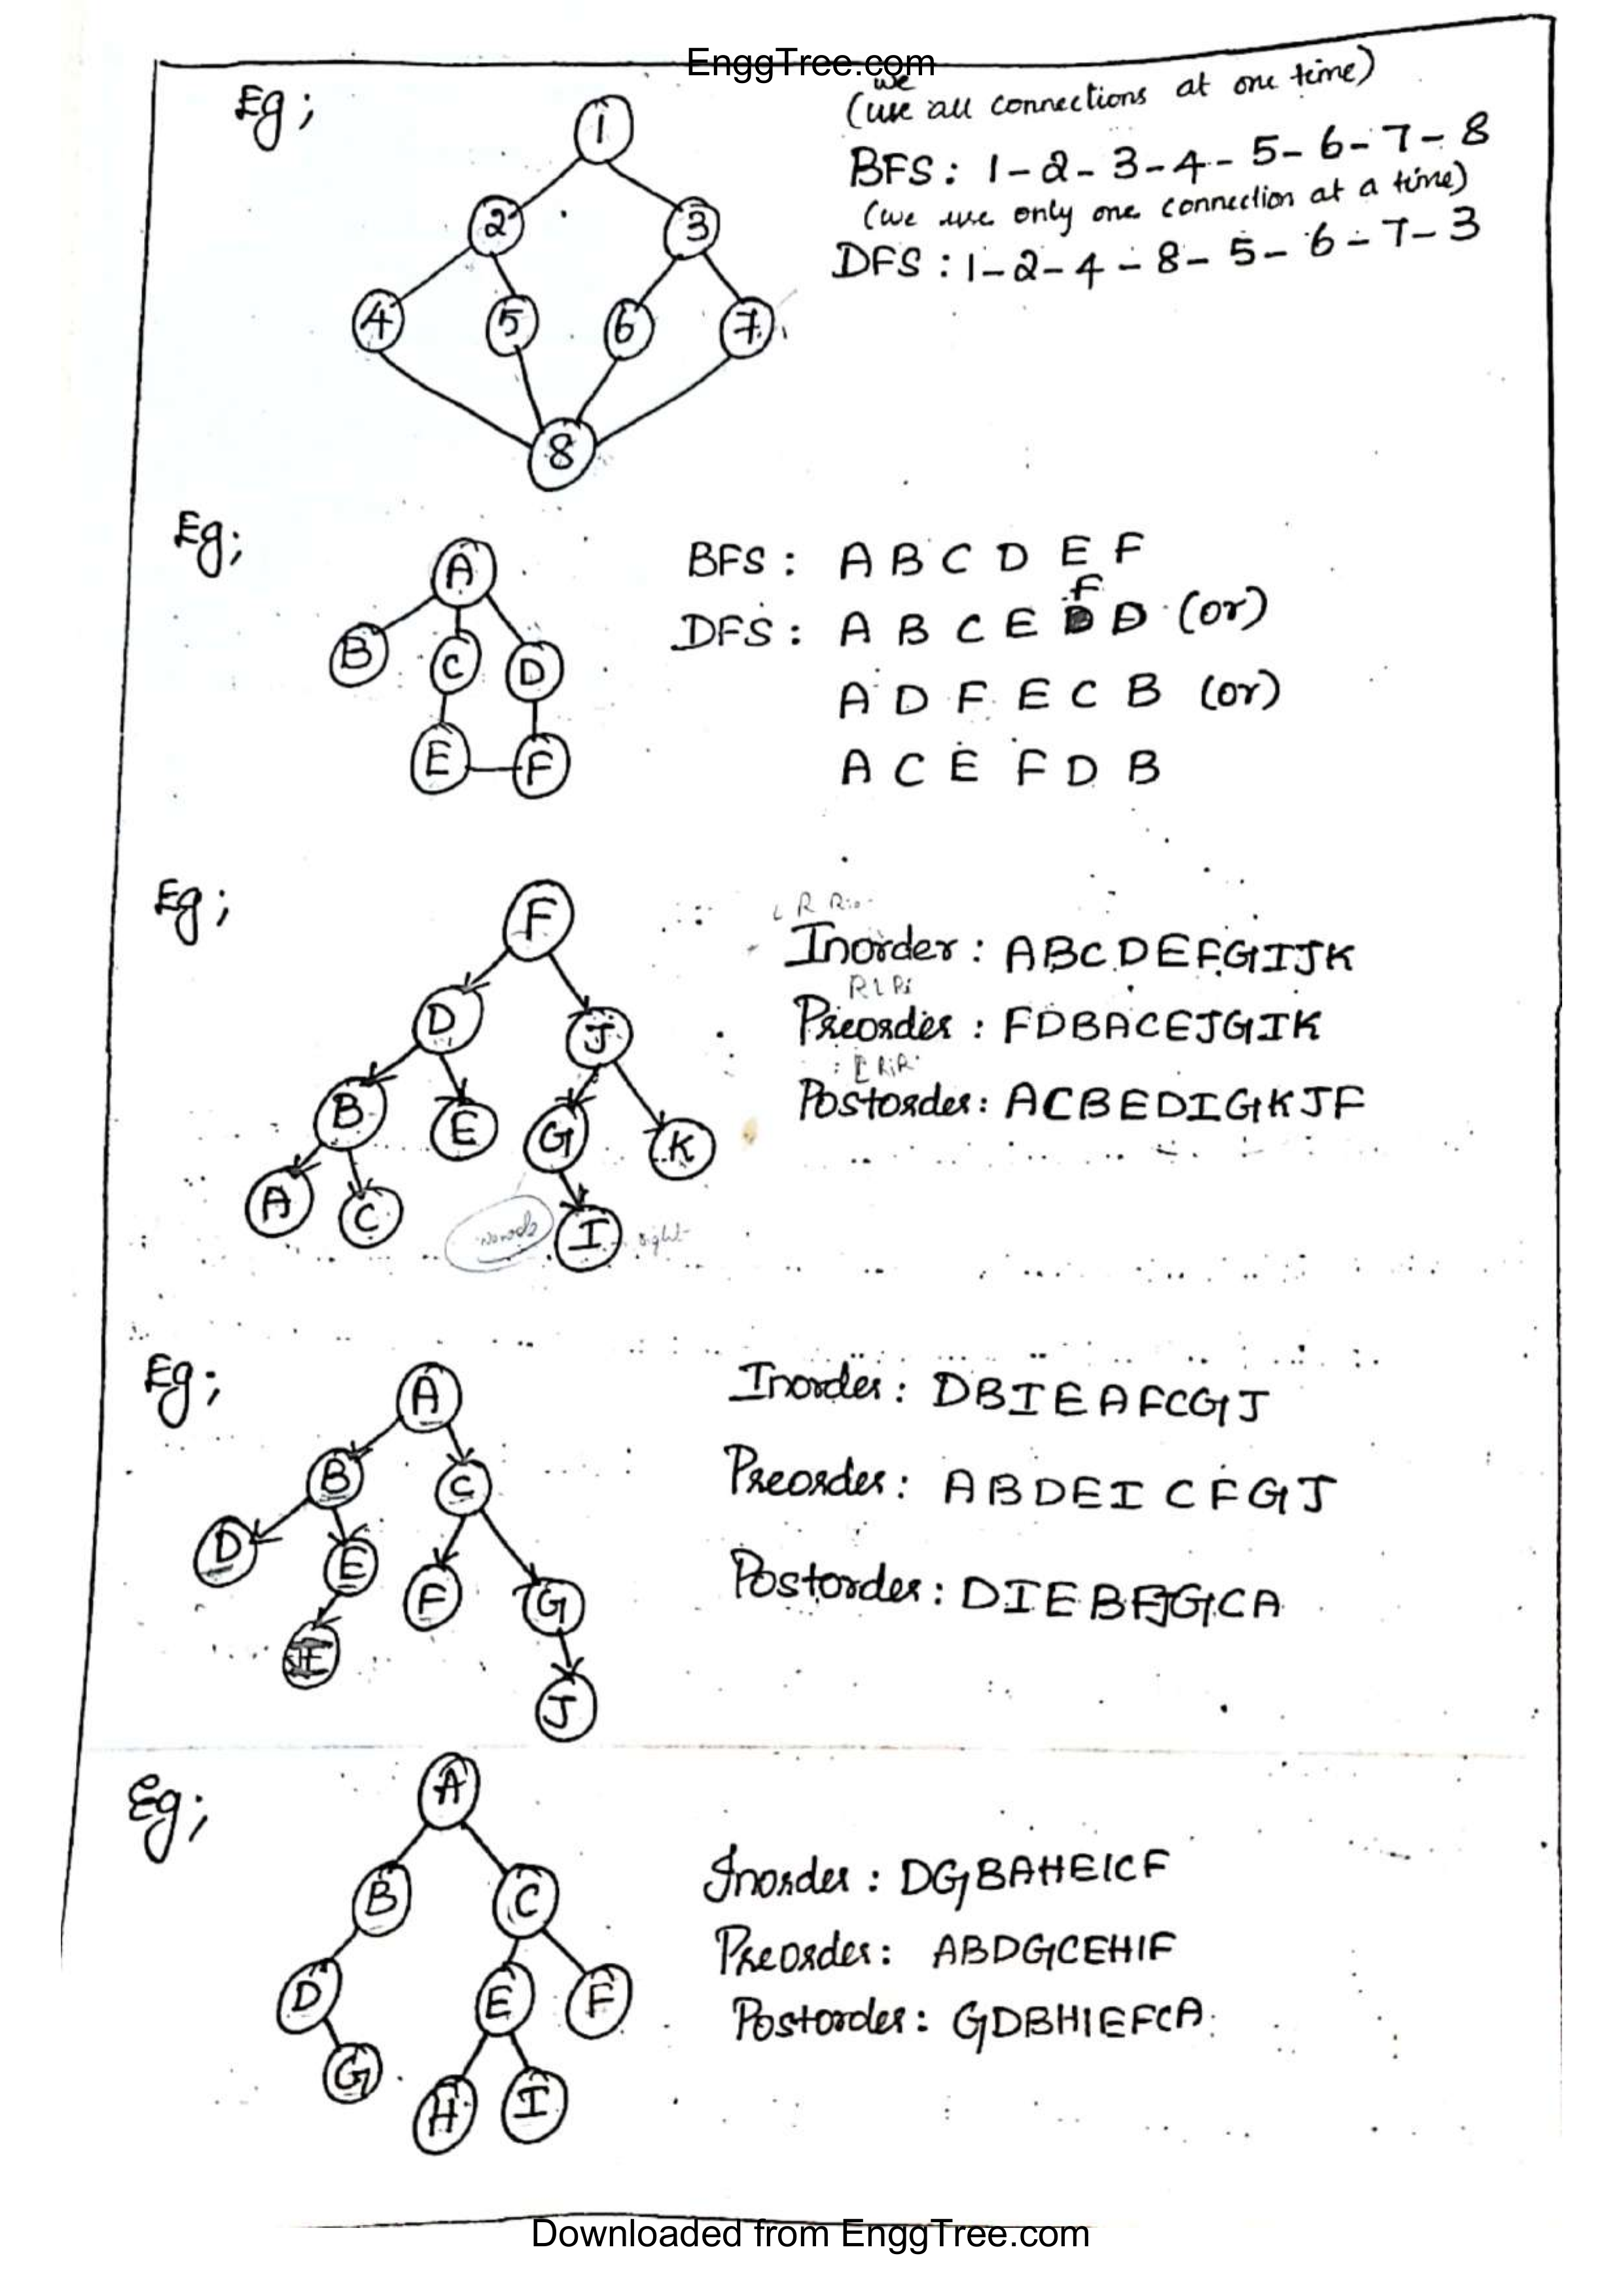 EnggTree.com
Eg;
we
(use all connections at one time)
BFS: 1-2-3-4-5-6-7-8
(we use only one connection at a time)
DFS: 1-2-4-8-5-6-7-3
1
2
3
4
5
6
7
8
Eg;
BFS: A B C D E F
F
DFS: A B C E D (or)
A D F E C B (or)
A C E F D B
A
B
C
D
E
F
Eg;
L R
Inorder: ABCDEFGIJK
R L Ri
Preorder: FDBACEJGIK
L Ri R
Postorder: ACBEDIGKJF
F
D
J
B
E
G
K
A
C
I
right
Eg;
Inorder: DBIEAFCGJ
Preorder: ABDEICFGJ
Postorder: DIEBFJGCA
A
B
C
D
E
F
G
I
J
Eg;
Inorder: DGBAHEICF
Preorder: ABDGCEHIF
Postorder: GDBHIEFCA
A
B
C
D
E
F
G
H
I
Downloaded from EnggTree.com